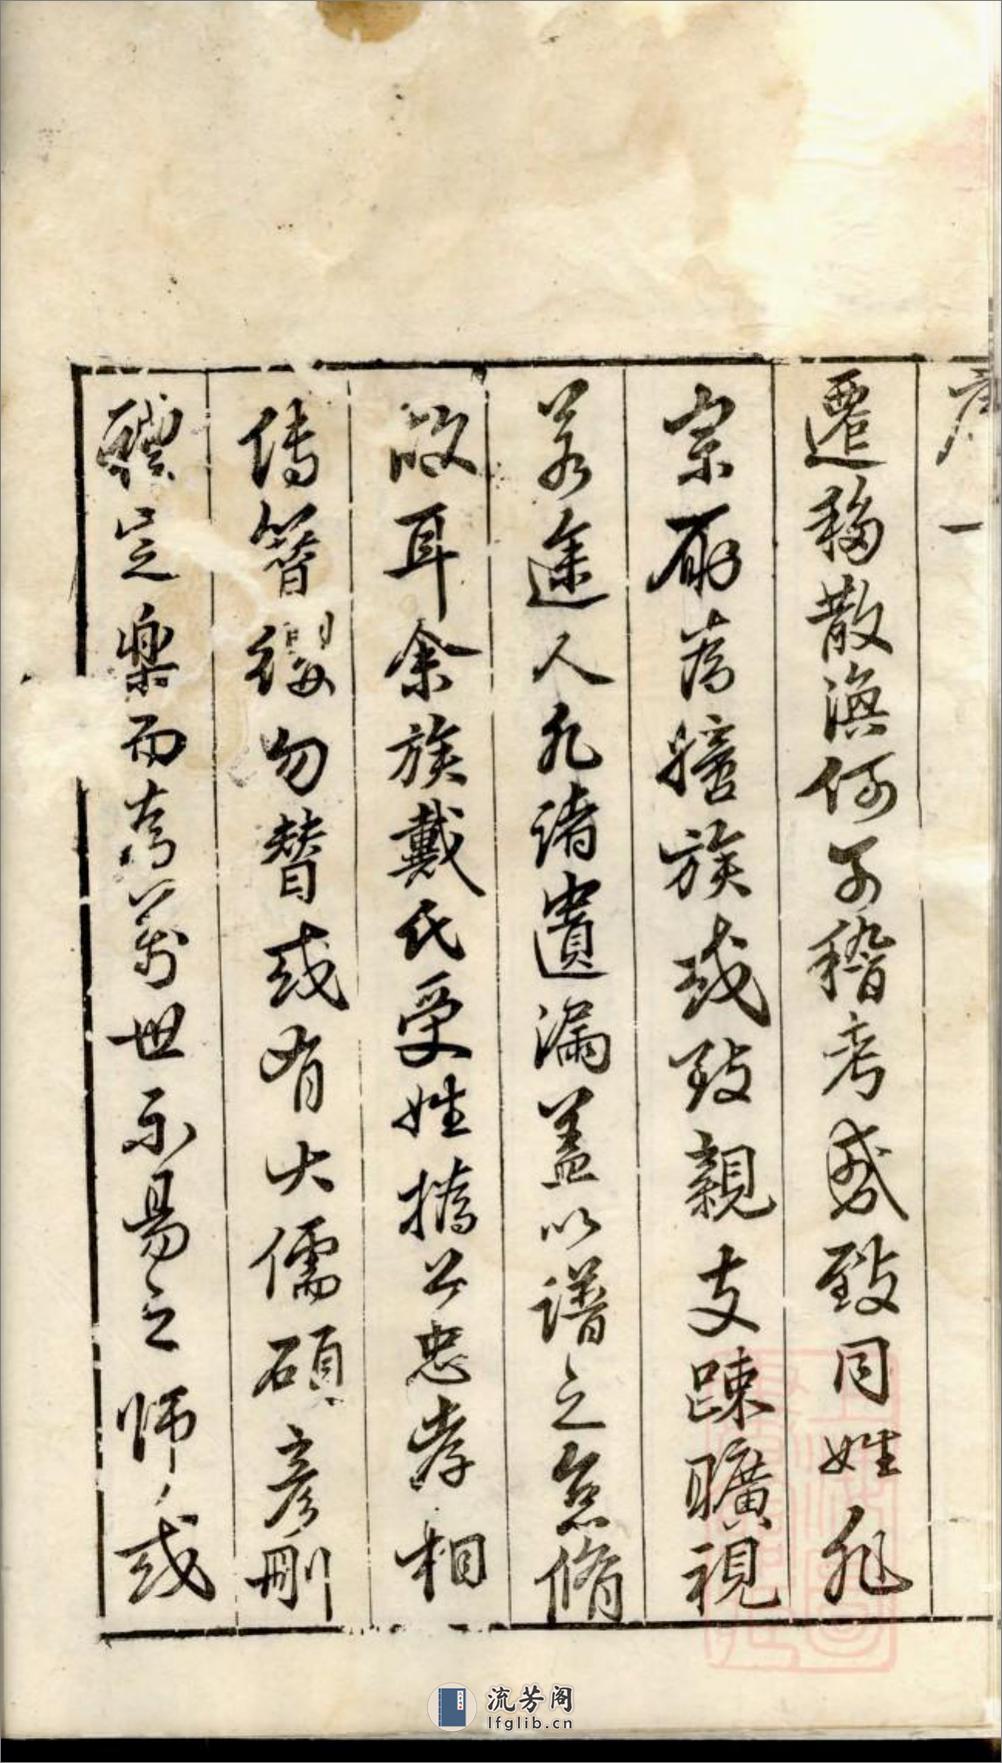 序 一
遷移散渙何可稽考或致同姓凡
宗所為瞻族或致親支踈曠視
若途人凡諸遺漏蓋以譜之怠脩
故耳余族戴氏受姓撝公忠孝相
傳簪纓勿替或有大儒碩彥刪
禮定樂而為萬世不易之師或
流芳阁
lfglib.cn